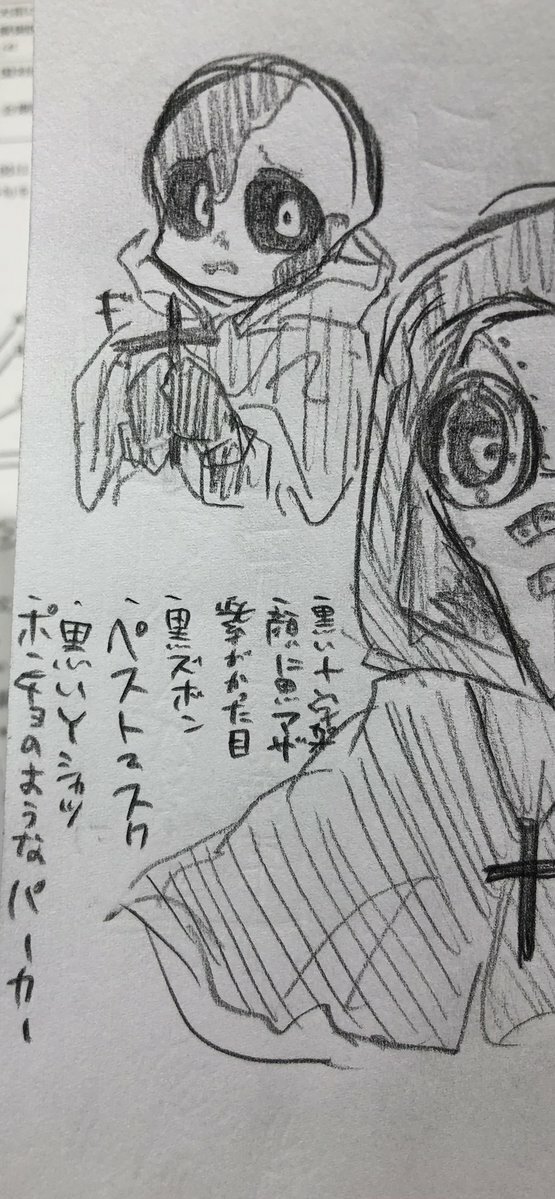 黒い十字架
顔に黒アザ
紫がかった目
黒ズボン
ペストマスク
黒いYシャツ
ポンチョのようなパーカー